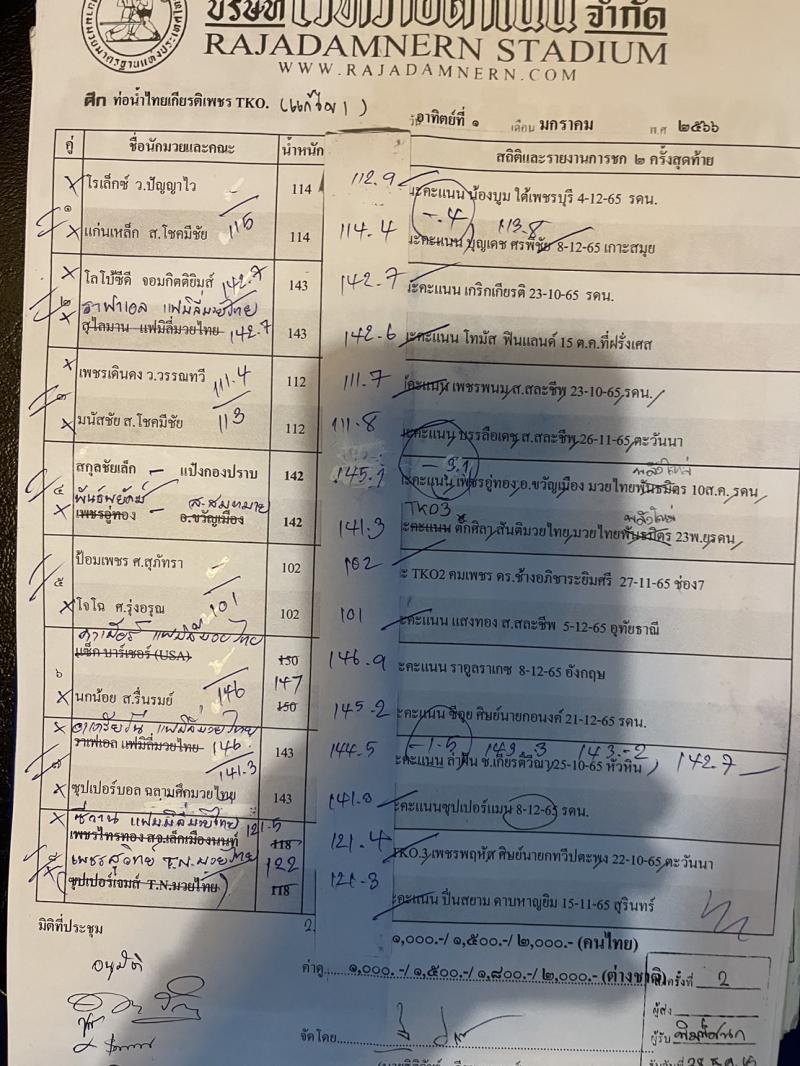 จำกัด
RAJADAMNERN STADIUM
WWW.RAJADAMNERN.COM
ศึก ท่อน้ำไทยเกียรติเพชร TKO. (แก้ไข 1)
อาทิตย์ที่ ๑ เดือน มกราคม พ.ศ ๒๕๖๖
คู่ ชื่อนักมวยและคณะ น้ำหนัก สถิติและรายงานการชก ๒ ครั้งสุดท้าย
๑
โรเล็กซ์ ว.ปัญญาไว 114 112.9 ะคะแนน น้องบูม ใต้เพชรบุรี 4-12-65 รดน.
-.4 113.8
แก่นเหล็ก ส.โชคมีชัย 115 114 114.4 ะคะแนน บุญเดช ศรพิชัย 8-12-65 เกาะสมุย
๒
โลโบ้ซีดี จอมกิตติยิมส์ 142.7 143 142.7 ะคะแนน เกริกเกียรติ 23-10-65 รดน.
ราฟาเอล แฟมิลี่มวยไทย
สุไลมาน แฟมิลี่มวยไทย 142.7 143 142.6 ะคะแนน โทมัส ฟินแลนด์ 15 ต.ค.ที่ฝรั่งเศส
๓
เพชรเดินดง ว.วรรณทวี 111.4 112 111.7 ะคะแนน เพชรพนม ส.สละชีพ 23-10-65 รดน.
มนัสชัย ส.โชคมีชัย 113 112 111.8 ะคะแนน บรรลือเดช ส.สละชีพ 26-11-65 ตะวันนา
-3.1
๔
สกุลชัยเล็ก แป้งกองปราบ 142 145.1 ะคะแนน เพชรอู่ทอง อ.ขวัญเมือง มวยไทยพันธมิตร 10ส.ค. รดน
TKO3
เพชรอู่ทอง อ.ขวัญเมือง 142 141.3 ะคะแนน ตั๊กศิลา สันติมวยไทย มวยไทยพันธมิตร 23พ.ย รดน
๕
ป้อมเพชร ศ.สุภัทรา 102 102 ะ TKO2 คมเพชร ดร.ช้างอภิชาระยิมศรี 27-11-65 ช่อง7
โจโฉ ศ.รุ่งอรุณ 101 102 101 ะคะแนน แสงทอง ส.สละชีพ 5-12-65 อุทัยธานี
๖
แฟมิลี่มวยไทย
แซ็ค บาร์เชอร์ (USA) 150 146.9 ะคะแนน ราอูลราเกซ 8-12-65 อังกฤษ
147
นกน้อย ส.รื่นรมย์ 146 150 145.2 ะคะแนน ซีอุย ศิษย์นายกอนงค์ 21-12-65 รดน.
๗
แฟมิลี่มวยไทย -1.5 143.3 143.-2 142.7
ราเฟเอล แฟมิลี่มวยไทย 146. 143 144.5 ะคะแนน ลำฝัน ช.เกียรติวีณา 25-10-65 หัวหิน
141.3
ซุปเปอร์บอล ฉลามศึกมวยไทย 143 141.3 ะคะแนนซุปเปอร์แมน 8-12-65 รดน.
แฟมมิลี่มวยไทย 121.5
เพชรไทรทอง สจ.เล็กเมืองนนท์ 118 121.4 TKO.3 เพชรพฤหัส ศิษย์นายกทวีปตะพง 22-10-65 ตะวันนา
เพชรสุวิทย์ T.N.มวยไทย 122
ซุปเปอร์เจมส์ T.N.มวยไทย 118 121.3 ะคะแนน ปิ่นสยาม ดาบหาญยิม 15-11-65 สุรินทร์
มิติที่ประชุม ๑,๐๐๐.-/ ๑,๕๐๐/ ๒,๐๐๐.- (คนไทย)
อนุมัติ
ค่าดู ๑,๐๐๐. -/ ๑,๕๐๐/ ๑,๘๐๐/ ๒,๐๐๐.- (ต่างชาติ)
ครั้งที่ 2
ผู้ส่ง
จัดโดย
ผู้รับ